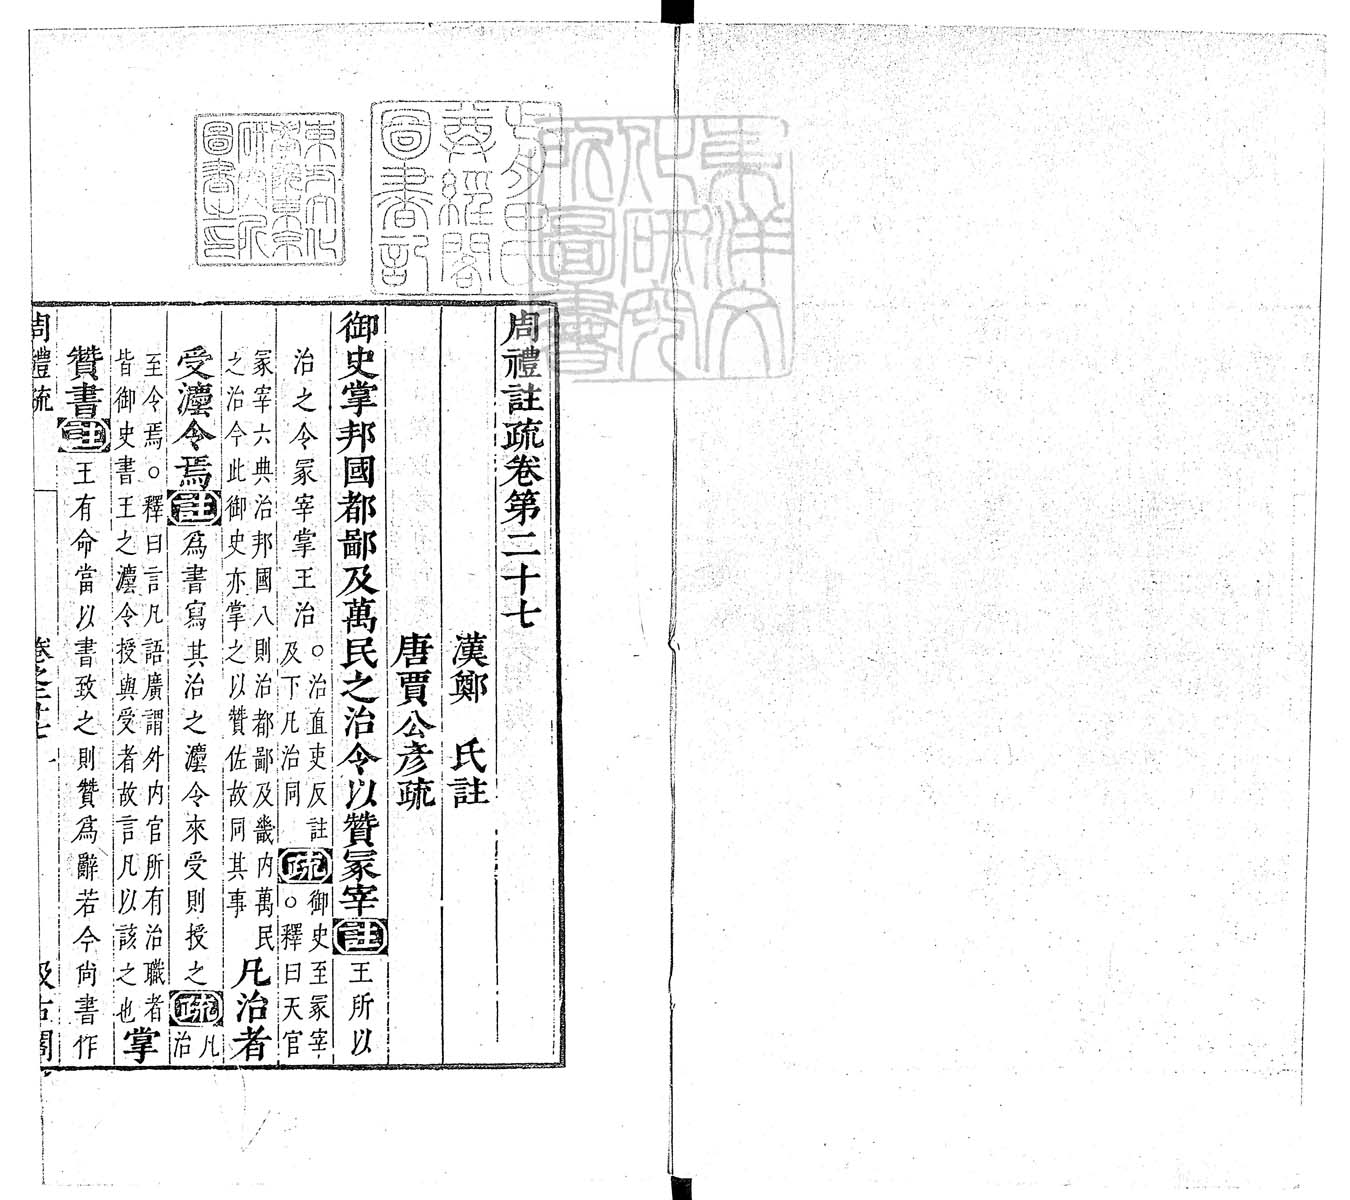 東洋文
化研究
所圖書
尊經閣
圖書記
周禮註疏卷第二十七
漢鄭　氏註
唐賈公彥疏
御史掌邦國都鄙及萬民之治令以贊冢宰註王所以
治之令冢宰掌王治
○治直吏反註
及下凡治同
疏
御史至冢宰
○釋曰天官
冢宰六典治邦國八則治都鄙及畿内萬民
之治今此御史亦掌之以贊佐故同其事
凡治者
受灋令焉註爲書寫其治之灋令來受則授之疏
凡
治
至令焉○釋曰言凡語廣謂外内官所有治職者
皆御史書王之灋令授與受者故言凡以該之也
掌
贊書註王有命當以書致之則贊爲辭若今尚書作
周禮疏　卷之二十七　一　汲古閣